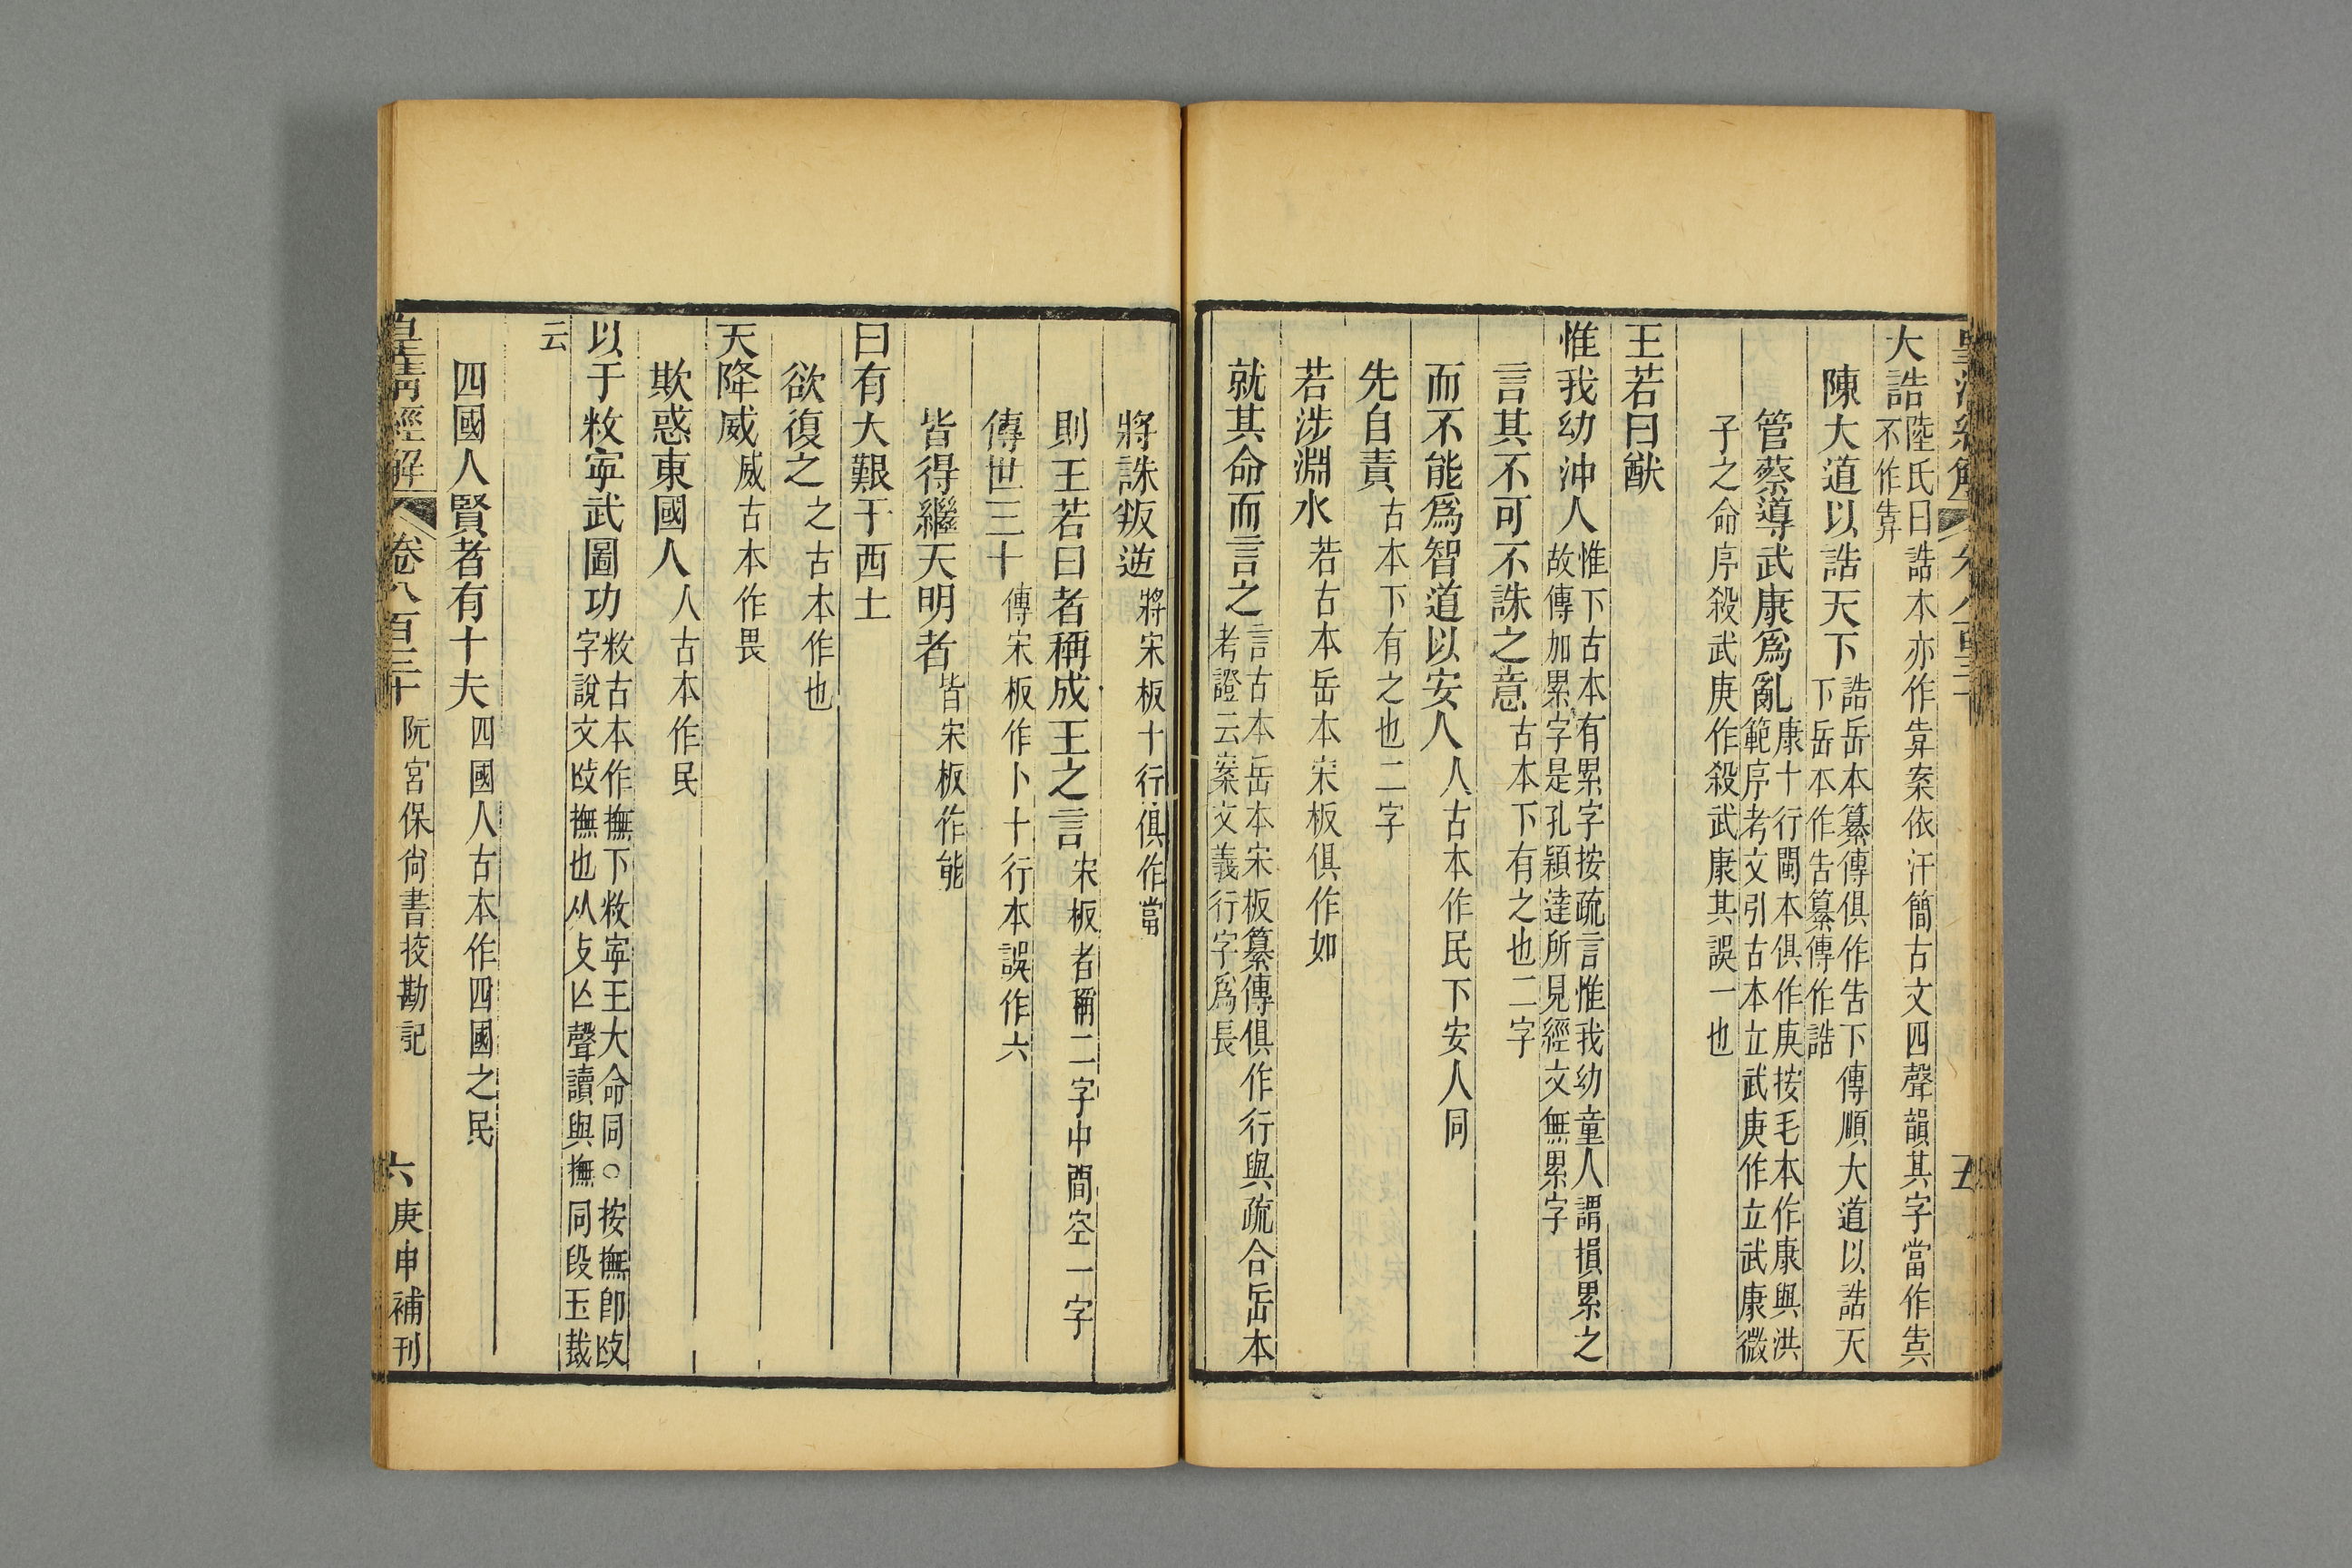 大誥陸氏曰誥本亦作𢍎案依汗簡古文四聲韻其字當作𡘲
不作𢍎
陳大道以誥天下誥岳本纂傳俱作告下傳順大道以誥天
下岳本作告纂傳作誥
管蔡導武康爲亂康十行閩本俱作庚按毛本作康與洪
範序考文引古本立武庚作立武康微
子之命序殺武庚作殺武康其誤一也
王若曰猷
惟我幼沖人惟下古本有累字按疏言惟我幼童人謂損累之
故傳加累字是孔穎達所見經文無累字
言其不可不誅之意古本下有之也二字
而不能爲智道以安人人古本作民下安人同
先自責古本下有之也二字
若涉淵水若古本岳本宋板俱作如
就其命而言之言古本岳本宋板纂傳俱作行與疏合岳本
考證云案文義行字爲長
將誅叛逆將宋板十行俱作當
則王若曰者稱成王之言宋板者稱二字中間空一字
傳世三十傳宋板作卜十行本誤作六
皆得繼天明者皆宋板作能
曰有大艱于西土
欲復之之古本作也
天降威威古本作畏
欺惑東國人人古本作民
以于敉寧武圖功敉古本作撫下敉寧王大命同○按撫卽㩴
字說文㩴撫也从攴亾聲讀與撫同段玉裁
云
四國人賢者有十夫四國人古本作四國之民
皇淸經解 卷八百三十 阮宮保尙書挍勘記 六 庚申補刊